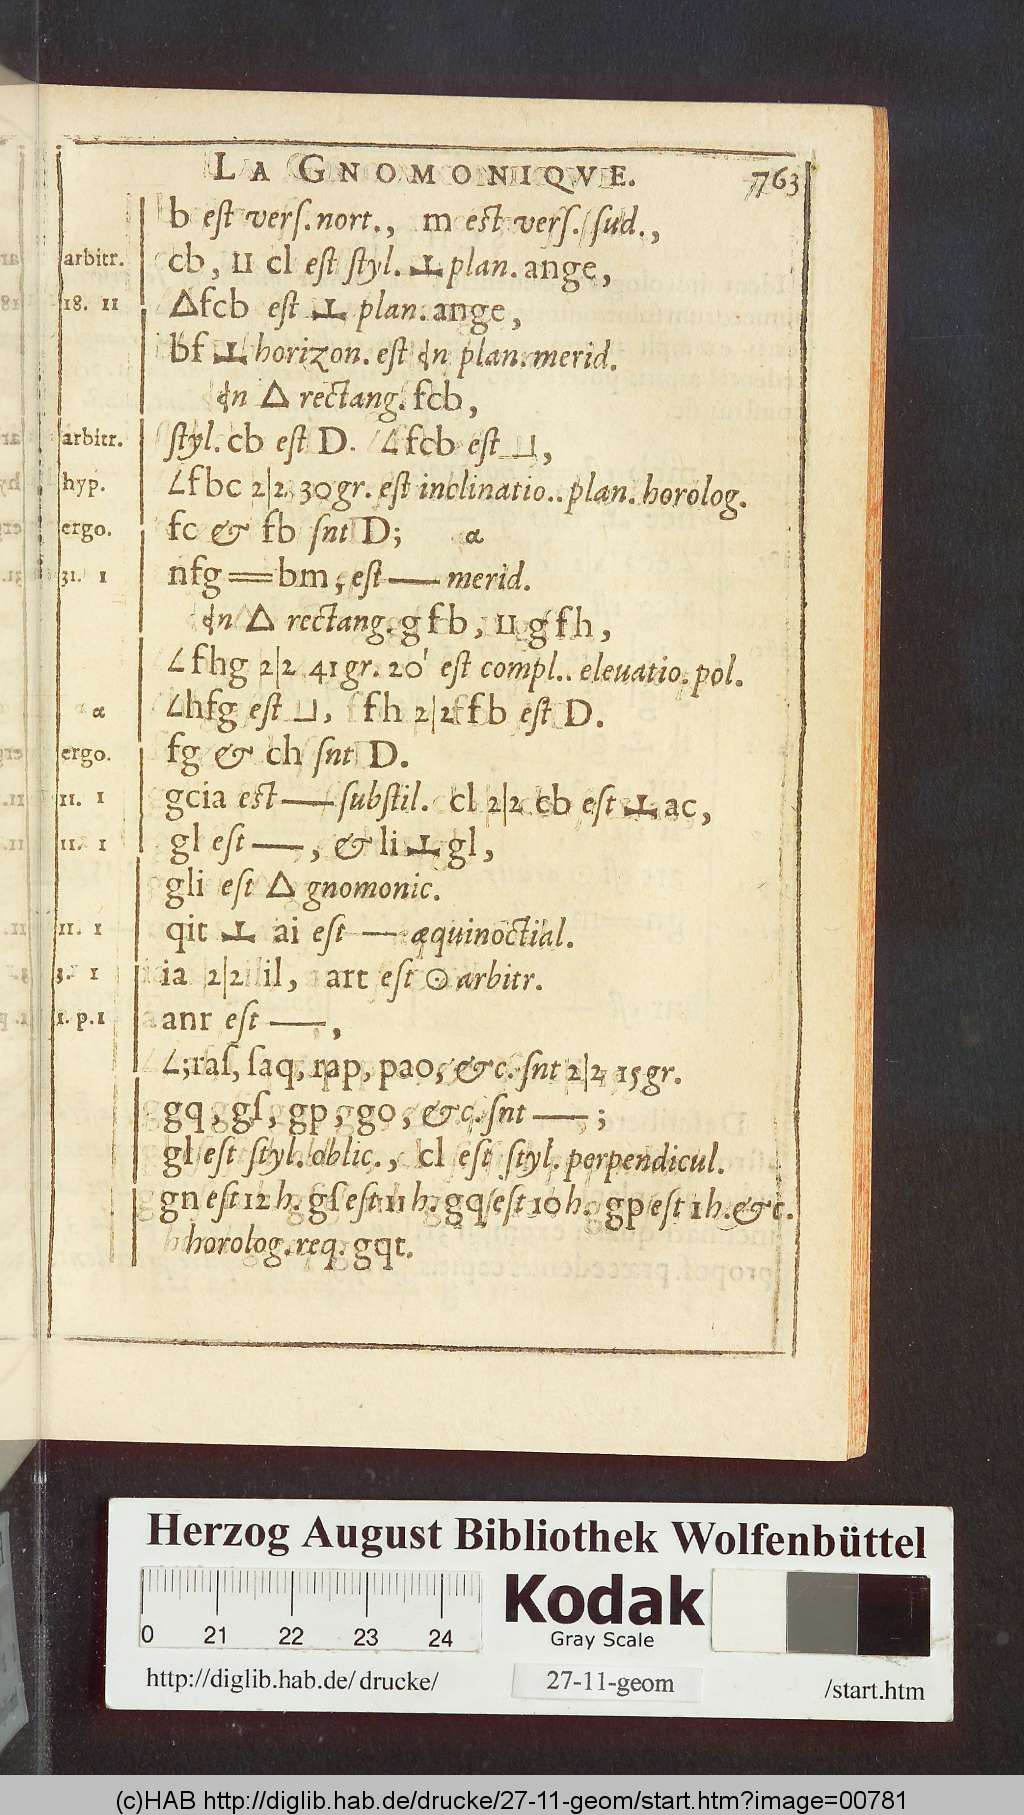 LA GNOMONIQVE. 763
b est vers. nort., m est vers. sud.,
arbitr. cb, ⊔ cl est styl. ⊥ plan. ange,
18. 11 Δfcb est ⊥ plan. ange,
bf ⊥ horizon. est in plan. merid.
in Δ rectang. fcb,
arbitr. styl. cb est D. ∠fcb est ⊔,
hyp. ∠fbc 2|2 30gr. est inclinatio.. plan. horolog.
ergo. fc & fb snt D; α
31. 1 nfg = bm, est — merid.
in Δ rectang. gfb, ⊔ gfh,
∠fhg 2|2 41gr. 20' est compl.. eleuatio. pol.
α ∠hfg est ⊔, fh 2|2 fb est D.
ergo. fg & ch snt D.
11. 1 gcia est — substil. cl 2|2 cb est ⊥ ac,
11. 1 gl est —, & li ⊥ gl,
gli est Δ gnomonic.
11. 1 qit ⊥ ai est — æquinoctial.
3. 1 ia 2|2 il, art est ⊙ arbitr.
1. p. 1 anr est —,
∠; raſ, ſaq, rap, pao, &c. snt 2|2 15gr.
gq, gſ, gp, go, &c. snt —;
gl est styl. oblic., cl est styl. perpendicul.
gn est 12 h. gſ est 11 h. gq est 10 h. gp est 1 h. &c.
horolog. req. gqt.
Herzog August Bibliothek Wolfenbüttel
0 21 22 23 24
Kodak
Gray Scale
http://diglib.hab.de/drucke/ 27-11-geom /start.htm
(c)HAB http://diglib.hab.de/drucke/27-11-geom/start.htm?image=00781